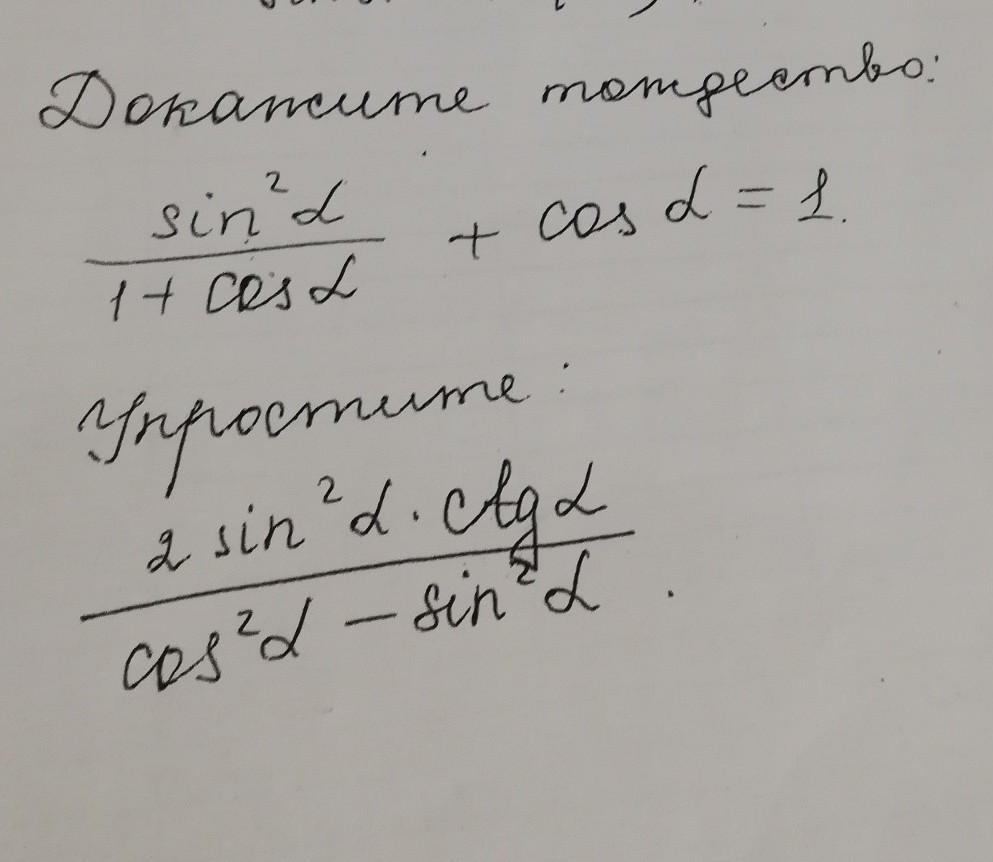 Докажите тождество:
sin²α / (1 + cos α) + cos α = 1.
Упростите:
2 sin²α · ctg α / (cos²α − sin²α).